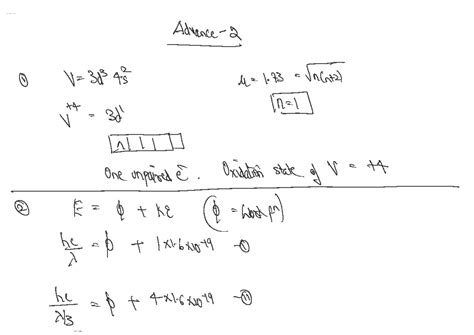 Advance-2
① V = 3d³ 4s² μ = 1.73 = √n(n+2)
V⁺⁴ = 3d¹ n=1
1
One unpaired e⁻. Oxidation state of V = +4
② E = φ + KE (φ = Work fⁿ)
hc/λ = φ + 1×1.6×10⁻¹⁹ –①
hc/λ/3 = φ + 4×1.6×10⁻¹⁹ –⑪